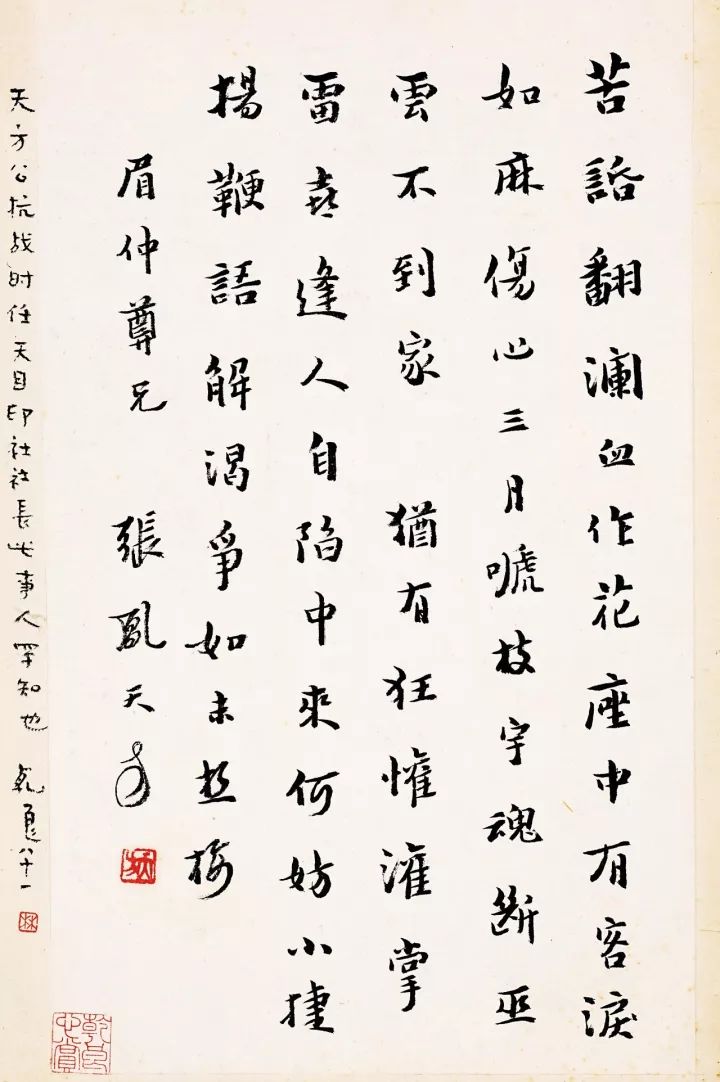 苦話翻瀾血作花座中有客淚
如麻傷心三月嗁枝宇魂斷巫
雲不到家 猶有狂懽灌掌
雷喜逢人自陷中來何妨小捷
揚鞭語解渴爭如未梅
眉仲尊兄 張鳳天方
天方公抗战时任天目印社社長此事人罕知也 乾良八十一
林